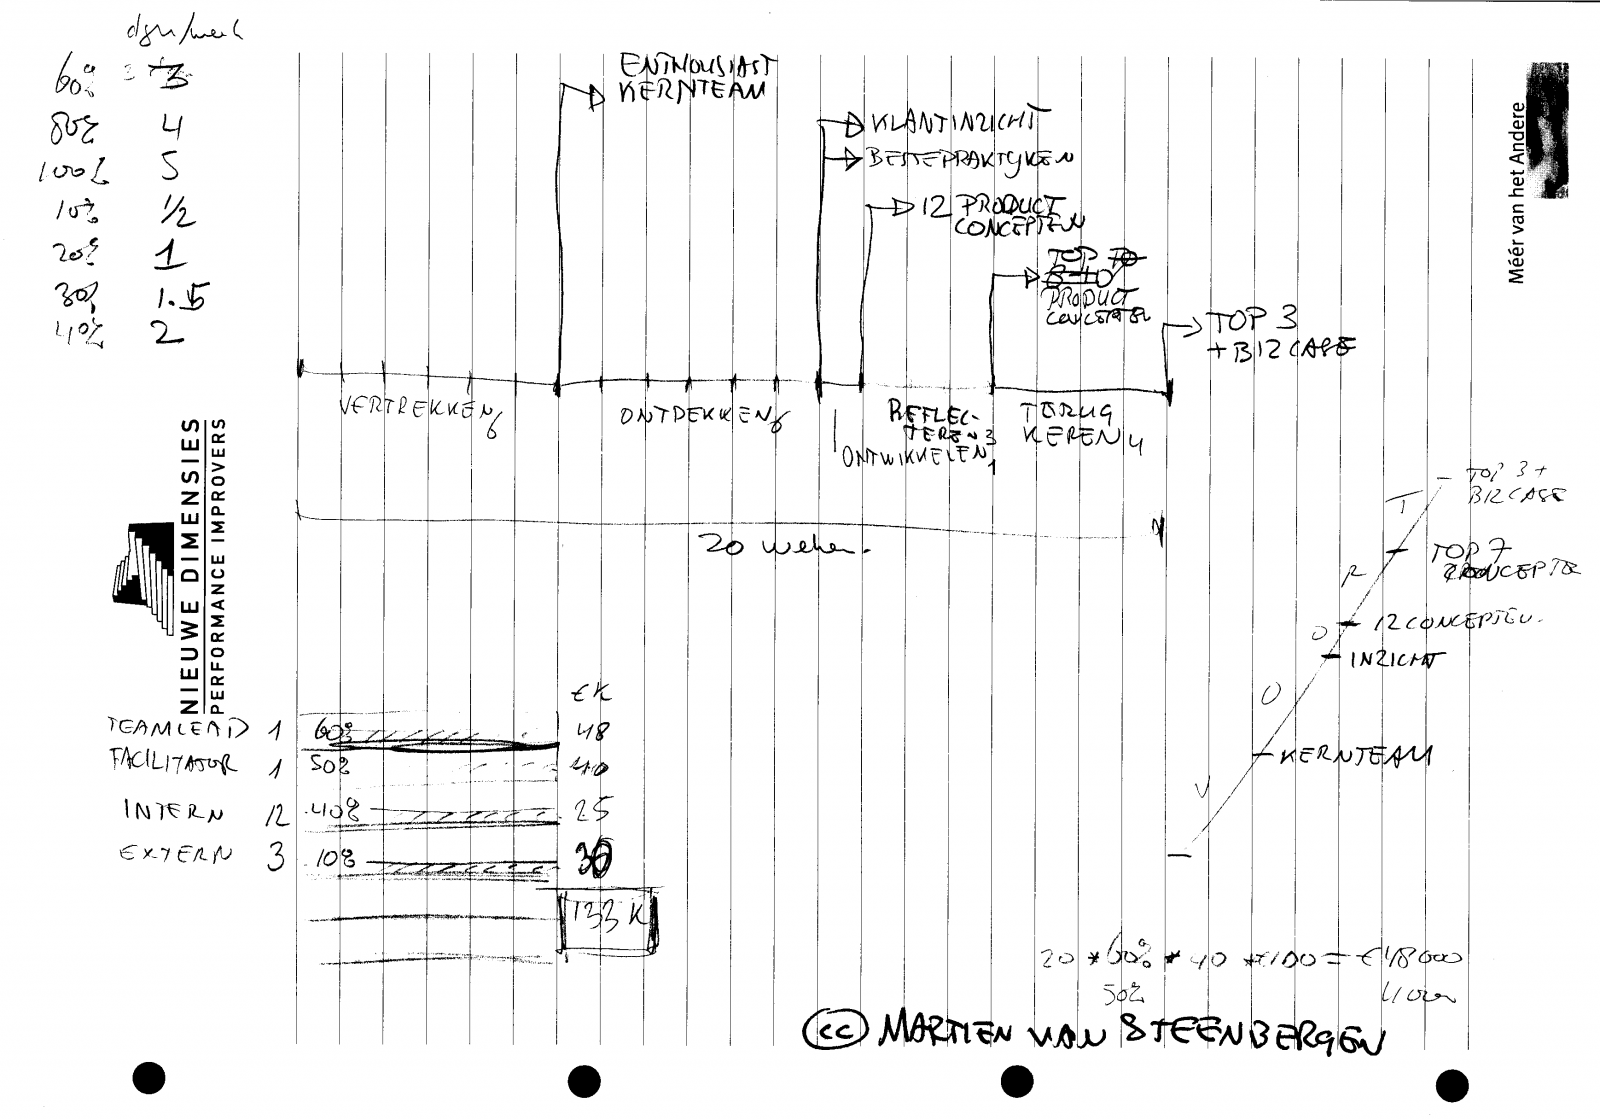 dgn/week
60% 3
80% 4
100% 5
10% 1/2
20% 1
30% 1.5
40% 2
ENTHOUSIAST
KERNTEAM
KLANTINZICHT
BESTEPRAKTIJKEN
12 PRODUCT
CONCEPTEN
TOP 7
8-10
PRODUCT
CONCEPTEN
TOP 3
+ BIZCASE
Méér van het Andere
VERTREKKEN 6
ONTDEKKEN 6
ONTWIKKELEN 1
REFLEC-
TEREN 3
TERUG
KEREN 4
20 weken.
NIEUWE DIMENSIES
PERFORMANCE IMPROVERS
€K
TEAMLEAD 1 60% 48
FACILITATOR 1 50% 40
INTERN 12 40% 25
EXTERN 3 10%
133 K
TOP 3 +
BIZCASE
T
TOP 7
CONCEPTE
R
12 CONCEPTEN.
O
INZICHT
O
KERNTEAM
V
20 * 60% * 40 * €100 = €48000
50% 40000
(cc) MARTIEN VAN STEENBERGEN